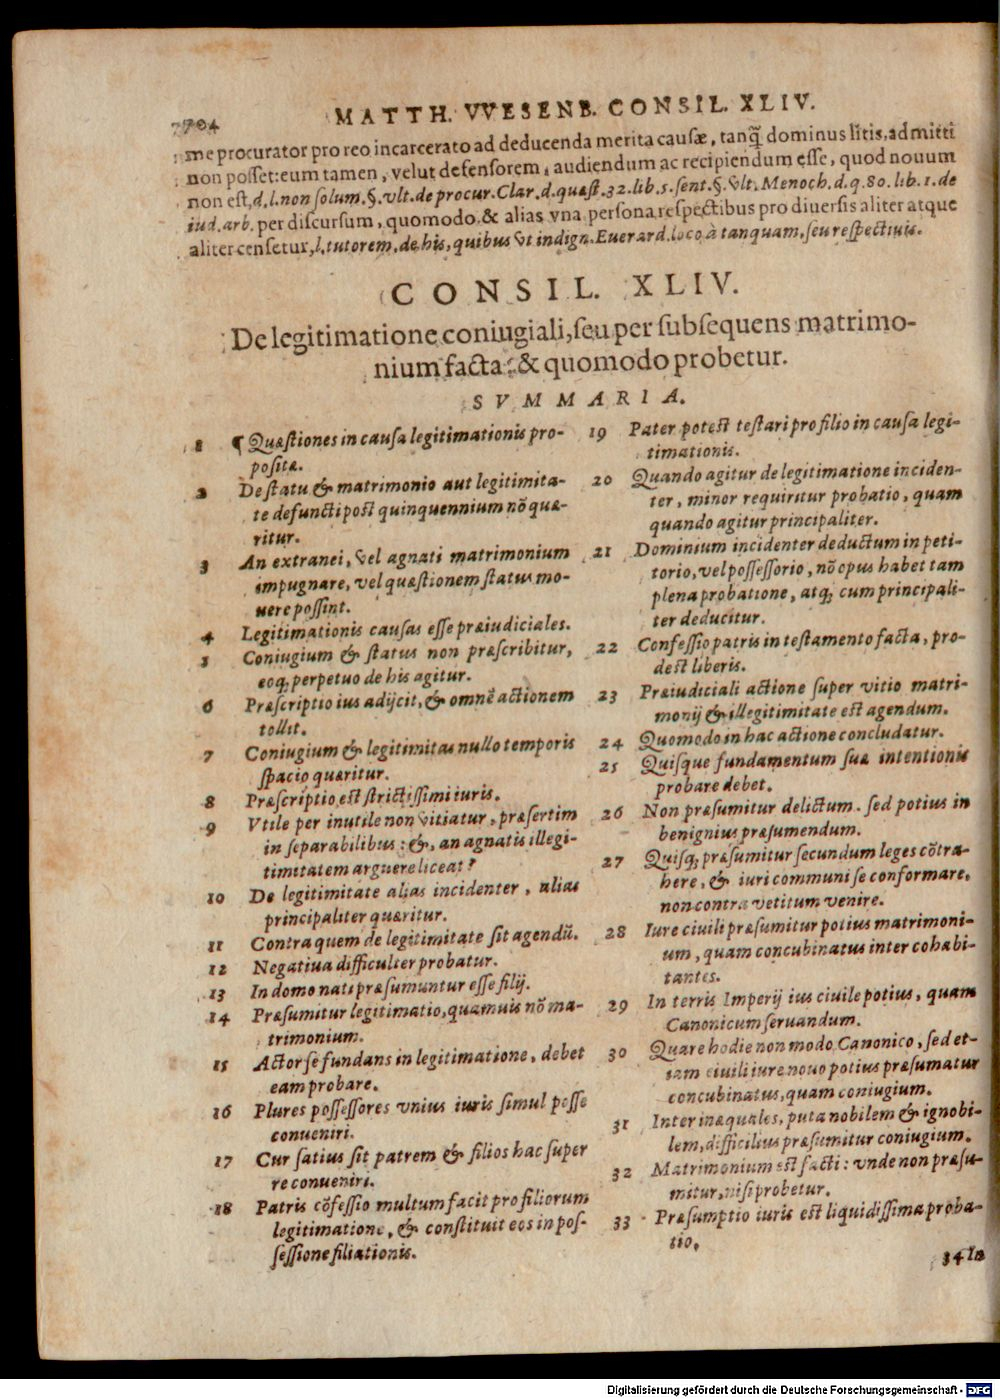 704
MATTH. VVESENB. CONSIL. XLIV.
me procurator pro reo incarcerato ad deducenda merita causæ, tanq̃ dominus litis, admitti
non posset: eum tamen, velut defensorem, audiendum ac recipiendum esse, quod nouum
non est, d. l. non solum. §. vlt. de procur. Clar. d. quæst. 32. lib. 5. sent. §. vlt. Menoch. d. q. 80. lib. 1. de
iud. arb. per discursum, quomodo & alias vna persona respectibus pro diuersis aliter atque
aliter censetur, l. tutorem, de his, quibus vt indign. Euerard. loco à tanquam, seu respectiuis.
CONSIL. XLIV.
De legitimatione coniugiali, seu per subsequens matrimo-
nium facta: & quomodo probetur.
SVMMARIA.
1 ¶ Quæstiones in causa legitimationis pro-
positæ.
2 De statu & matrimonio aut legitimita-
te defuncti post quinquennium nõ quæ-
ritur.
3 An extranei, vel agnati matrimonium
impugnare, vel quæstionem status mo-
uere possint.
4 Legitimationis causas esse præiudiciales.
5 Coniugium & status non præscribitur,
eoq; perpetuo de his agitur.
6 Præscriptio ius adijcit, & omnẽ actionem
tollit.
7 Coniugium & legitimitas nullo temporis
spacio quæritur.
8 Præscriptio est strictissimi iuris.
9 Vtile per inutile non vitiatur, præsertim
in separabilibus: &, an agnatis illegi-
timitatem arguere liceat?
10 De legitimitate alias incidenter, alias
principaliter quæritur.
11 Contra quem de legitimitate sit agendũ.
12 Negatiua difficulter probatur.
13 In domo nati præsumuntur esse filij.
14 Præsumitur legitimatio, quamuis nõ ma-
trimonium.
15 Actor se fundans in legitimatione, debet
eam probare.
16 Plures possessores vnius iuris simul posse
conueniri.
17 Cur satius sit patrem & filios hac super
re conueniri.
18 Patris cõfessio multum facit pro filiorum
legitimatione, & constituit eos in pos-
sessione filiationis.
19 Pater potest testari pro filio in causa legi-
timationis.
20 Quando agitur de legitimatione inciden-
ter, minor requiritur probatio, quam
quando agitur principaliter.
21 Dominium incidenter deductum in peti-
torio, vel possessorio, nõ opus habet tam
plena probatione, atq; cum principali-
ter deducitur.
22 Confessio patris in testamento facta, pro-
dest liberis.
23 Præiudiciali actione super vitio matri-
monij & illegitimitate est agendum.
24 Quomodo in hac actione concludatur.
25 Quisque fundamentum suæ intentionis
probare debet.
26 Non præsumitur delictum. sed potius in
benignius præsumendum.
27 Quisq; præsumitur secundum leges cõtra-
here, & iuri communi se conformare,
non contra vetitum venire.
28 Iure ciuili præsumitur potius matrimoni-
um, quam concubinatus inter cohabi-
tantes.
29 In terris Imperij ius ciuile potius, quam
Canonicum seruandum.
30 Quare hodie non modo Canonico, sed et-
iam ciuili iure nouo potius præsumatur
concubinatus, quam coniugium.
31 Inter inæquales, puta nobilem & ignobi-
lem, difficilius præsumitur coniugium.
32 Matrimonium est facti: vnde non præsu-
mitur, nisi probetur.
33 Præsumptio iuris est liquidissima proba-
tio.
34 In
Digitalisierung gefördert durch die Deutsche Forschungsgemeinschaft - DFG